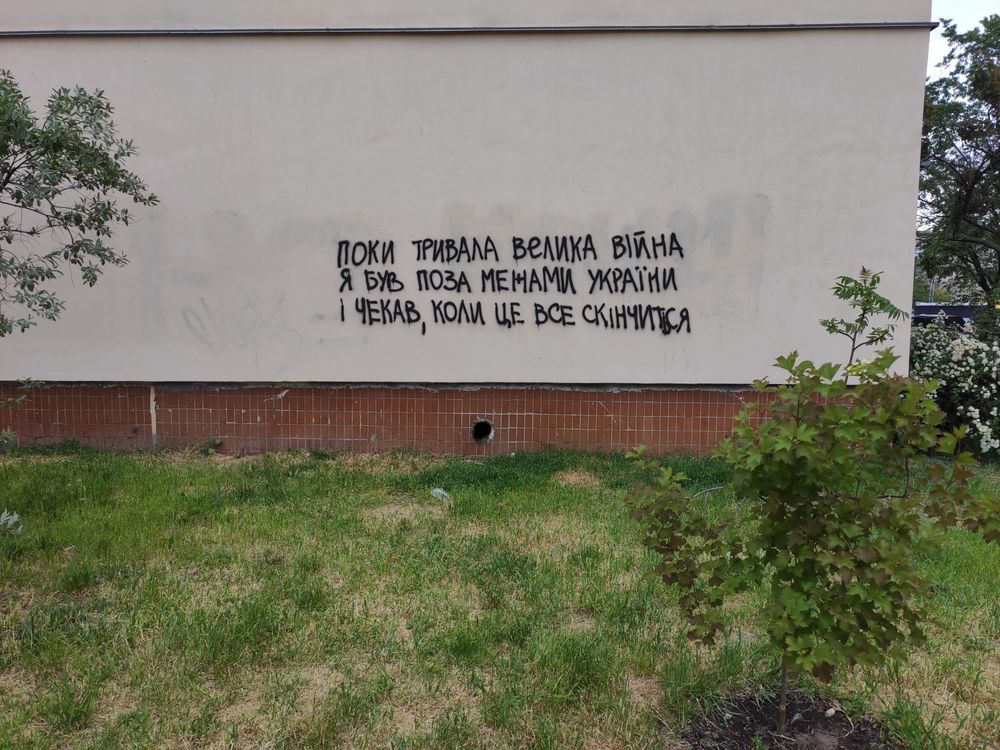 ПОКИ ТРИВАЛА ВЕЛИКА ВІЙНА
Я БУВ ПОЗА МЕЖАМИ УКРАЇНИ
І ЧЕКАВ, КОЛИ ЦЕ ВСЕ СКІНЧИТЬСЯ